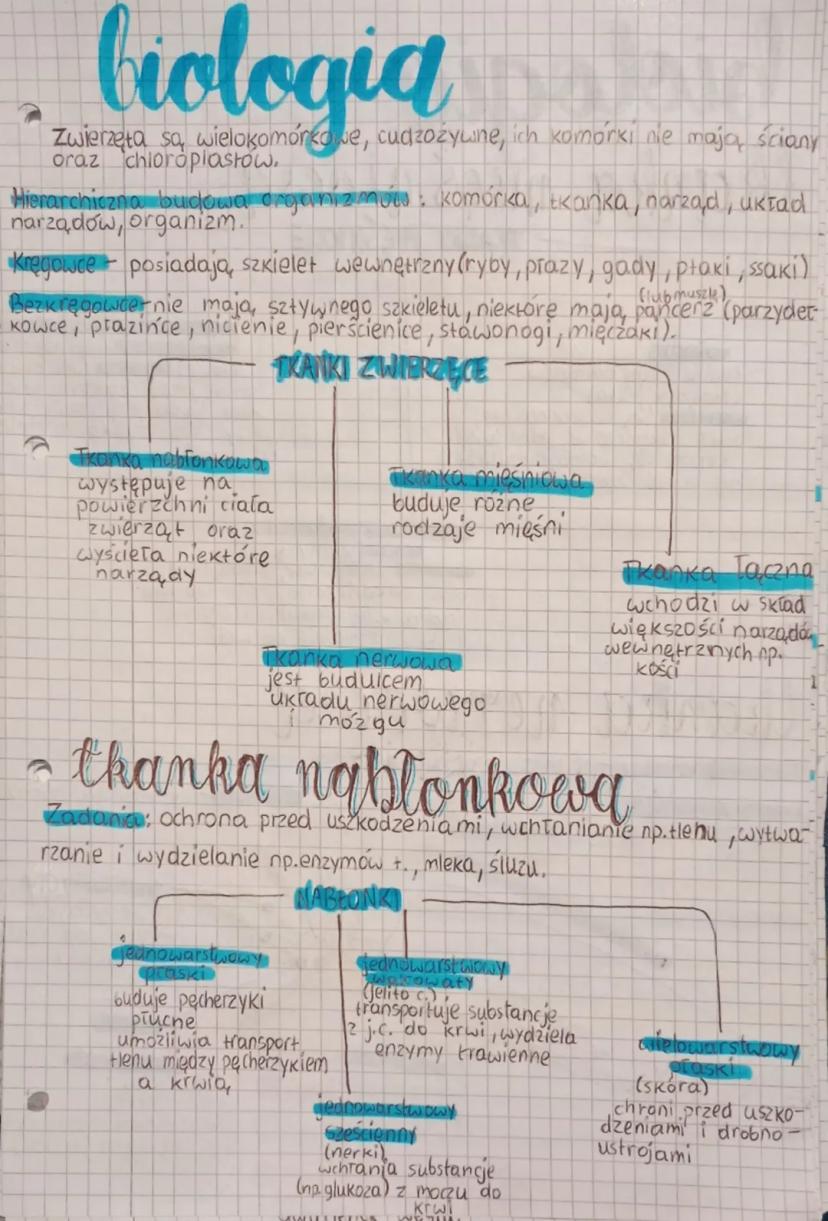 biologia
Zwierzęta są wielokomórkowe, cudzożywne, ich komórki nie mają ściany
oraz chloroplastów.
Hierarchiczna budowa organizmów: komórka, tkanka, narząd, układ
narządów, organizm.
Kręgowce - posiadają szkielet wewnętrzny (ryby, płazy, gady, ptaki, ssaki)
(lub muszlę)
Bezkręgowce - nie mają sztywnego szkieletu, niektóre mają pancerz (parzydeł-
kowce, płazińce, nicienie, pierścienice, stawonogi, mięczaki).
TKANKI ZWIERZĘCE
Tkanka nabłonkowa
występuje na
powierzchni ciała
zwierząt oraz
wyścieła niektóre
narządy
Tkanka mięśniowa
buduje różne
rodzaje mięśni
Tkanka łączna
wchodzi w skład
większości narządów
wewnętrznych np.
kości
Tkanka nerwowa
jest budulcem
układu nerwowego
i mózgu
tkanka nabłonkowa
Zadania: ochrona przed uszkodzeniami, wchłanianie np. tlenu, wytwa-
rzanie i wydzielanie np. enzymów t., mleka, śluzu.
NABŁONKI
jednowarstwowy
płaski
buduje pęcherzyki
płucne
umożliwia transport
tlenu między pęcherzykiem
a krwią
jednowarstwowy
walcowaty
(jelito c.)
transportuje substancje
z j.c. do krwi, wydziela
enzymy trawienne
wielowarstwowy
płaski
(skóra)
chroni przed uszko-
dzeniami i drobno-
ustrojami
jednowarstwowy
sześcienny
(nerki)
wchłania substancje
(np. glukoza) z moczu do
krwi